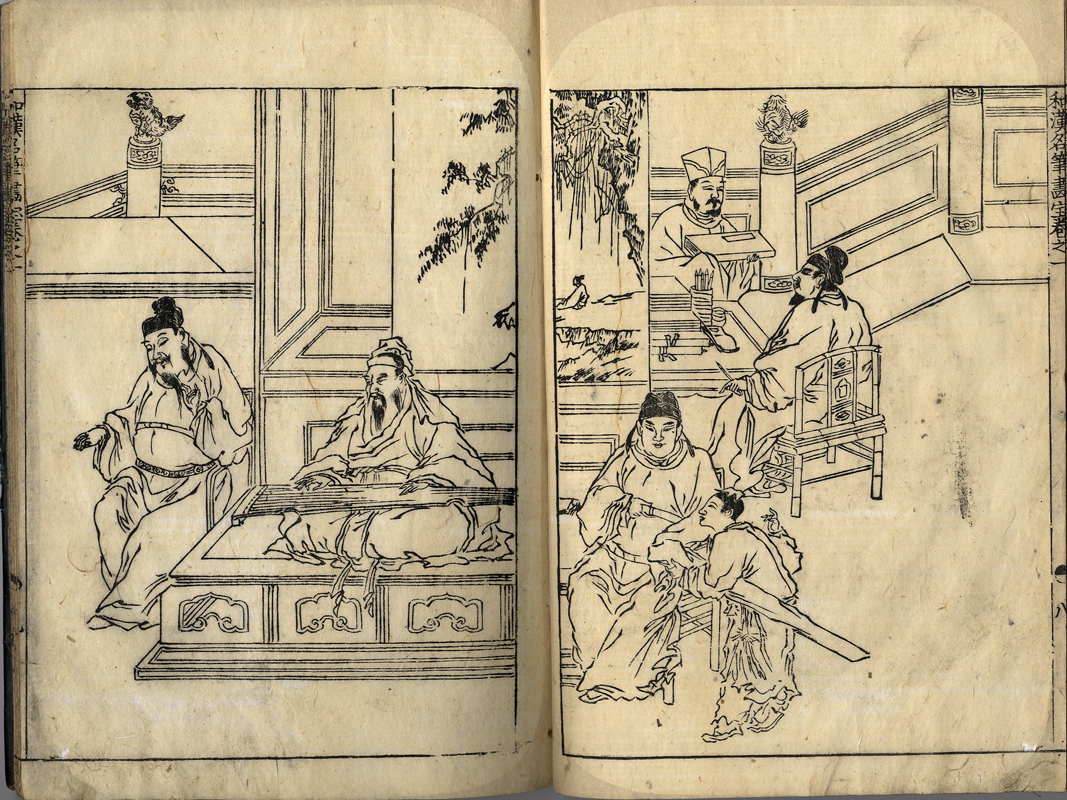 和漢名筆畫宝卷之一
八
和漢名筆畫宝卷之一